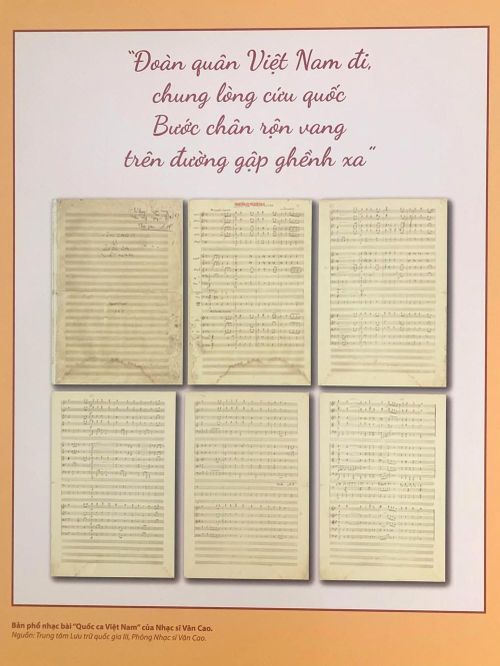 “Đoàn quân Việt Nam đi,
chung lòng cứu quốc
Bước chân rộn vang
trên đường gập ghềnh xa”
Bản phổ nhạc bài “Quốc ca Việt Nam” của Nhạc sĩ Văn Cao.
Nguồn: Trung tâm Lưu trữ quốc gia III, Phông Nhạc sĩ Văn Cao.